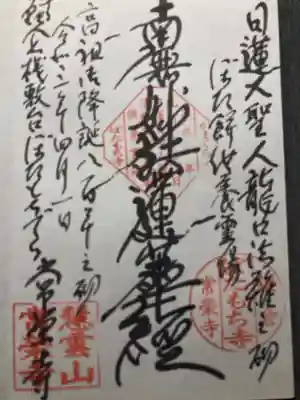 日蓮大聖人龍口法難之砌
ぼた餅供養霊場
南無妙法蓮華経
高祖御降誕八百年之砌
令和三年四月一日
鎌倉桟敷台ぼたもちでら常栄寺
ぼたもち寺
常栄寺
慧雲山
常栄寺